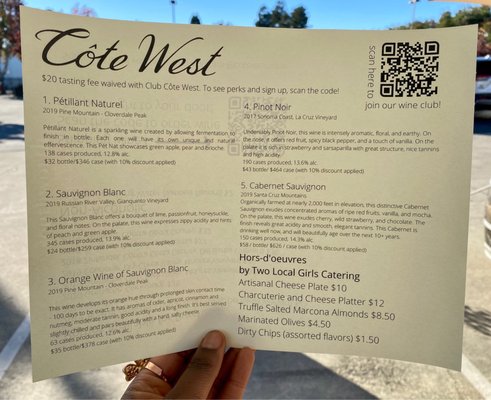 Côte West
$20 tasting fee waived with Club Côte West. To see perks and sign up, scan the code!
scan here to
join our wine club!
1. Pétillant Naturel
2019 Pine Mountain - Cloverdale Peak
Pétillant Naturel is a sparkling wine created by allowing fermentation to
finish in bottle. Each one will have its own unique and natural
effervescence. This Pet Nat showcases green apple, pear and brioche.
138 cases produced, 12.8% alc.
$32 bottle/$346 case (with 10% discount applied)
2. Sauvignon Blanc
2019 Russian River Valley, Gianquinto Vineyard
This Sauvignon Blanc offers a bouquet of lime, passionfruit, honeysuckle,
and floral notes. On the palate, this wine expresses zippy acidity and hints
of peach and green apple.
345 cases produced, 13.9% alc.
$24 bottle/$259 case (with 10% discount applied)
3. Orange Wine of Sauvignon Blanc
2019 Pine Mountain - Cloverdale Peak
This wine develops its orange hue through prolonged skin contact time
- 100 days to be exact. It has aromas of cider, apricot, cinnamon and
nutmeg, moderate tannin, good acidity and a long finish. It's best served
slightly chilled and pairs beautifully with a hard, salty cheese.
63 cases produced, 12.6% alc.
$35 bottle/$378 case (with 10% discount applied)
4. Pinot Noir
2017 Sonoma Coast, La Cruz Vineyard
Undeniably Pinot Noir, this wine is intensely aromatic, floral, and earthy. On
the nose, it offers red fruit, spicy black pepper, and a touch of vanilla. On the
palate it is rich in strawberry and sarsaparilla with great structure, nice tannins
and high acidity.
190 cases produced, 13.6% alc.
$43 bottle/ $464 case (with 10% discount applied)
5. Cabernet Sauvignon
2019 Santa Cruz Mountains
Organically farmed at nearly 2,000 feet in elevation, this distinctive Cabernet
Sauvignon exudes concentrated aromas of ripe red fruits, vanilla, and mocha.
On the palate, this wine exudes cherry, wild strawberry, and chocolate. The
finish reveals great acidity and smooth, elegant tannins. This Cabernet is
drinking well now, and will beautifully age over the next 10+ years.
150 cases produced, 14.3% alc.
$58 / bottle/ $626 / case (with 10% discount applied)
Hors-d'oeuvres
by Two Local Girls Catering
Artisanal Cheese Plate $10
Charcuterie and Cheese Platter $12
Truffle Salted Marcona Almonds $8.50
Marinated Olives $4.50
Dirty Chips (assorted flavors) $1.50